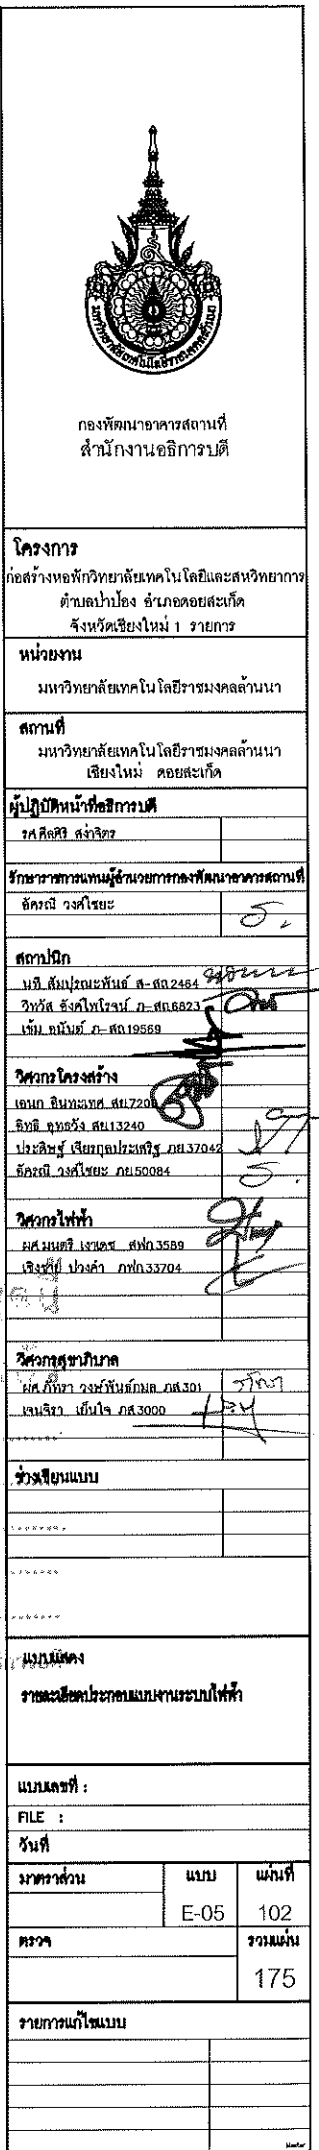 มหาวิทยาลัยเทคโนโลยีราชมงคลล้านนา
กองพัฒนาอาคารสถานที่
สำนักงานอธิการบดี
โครงการ
ก่อสร้างหอพักวิทยาลัยเทคโนโลยีและสหวิทยาการ
ตำบลป่าป้อง อำเภอดอยสะเก็ด
จังหวัดเชียงใหม่ 1 รายการ
หน่วยงาน
มหาวิทยาลัยเทคโนโลยีราชมงคลล้านนา
สถานที่
มหาวิทยาลัยเทคโนโลยีราชมงคลล้านนา
เชียงใหม่ ดอยสะเก็ด
ผู้ปฏิบัติหน้าที่อธิการบดี
รศ.ศีลศิริ สง่าจิตร
รักษาราชการแทนผู้อำนวยการกองพัฒนาอาคารสถานที่
อัครณี วงศ์ไชยะ
สถาปนิก
นที สัมปุรณะพันธ์ ส-สถ2464
วิทวัส ยังศ์ไพโรจน์ ภ-สถ.6823
เข้ม อนันต์ ภ-สถ19569
วิศวกรโครงสร้าง
เอนก อินทะเทศ สย.720
อิทธิ อุทธวัง สย13240
ประดิษฐ์ เจียรกุลประเสริฐ ภย37042
อัครณี วงศ์ไชยะ ภย.50084
วิศวกรไฟฟ้า
ผศ.มนตรี เงาเดช สฟก3589
เชิงชาย ปวงคำ ภฟก33704
วิศวกรสุขาภิบาล
ผศ.ภัทรา วงษ์พันธ์กมล ภส.301
เจนจิรา เย็นใจ ภส.3000
ช่างเขียนแบบ
แบบแสดง
รายละเอียดประกอบแบบงานระบบไฟฟ้า
แบบเลขที่ :
FILE :
วันที่
มาตราส่วน แบบ แผ่นที่
E-05 102
ตรวจ รวมแผ่น
175
รายการแก้ไขแบบ
Master